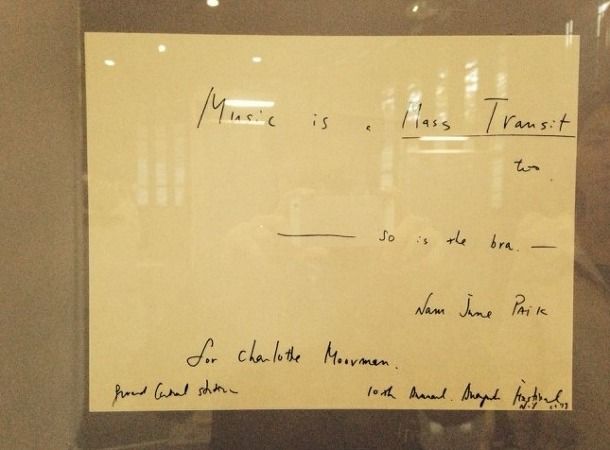 Music is a Mass Transit
too.
—— so is the bra. —
Nam June PAIK
for Charlotte Moorman.
Grand Central station 10th Annual. Avantgarde Festival
N.Y.